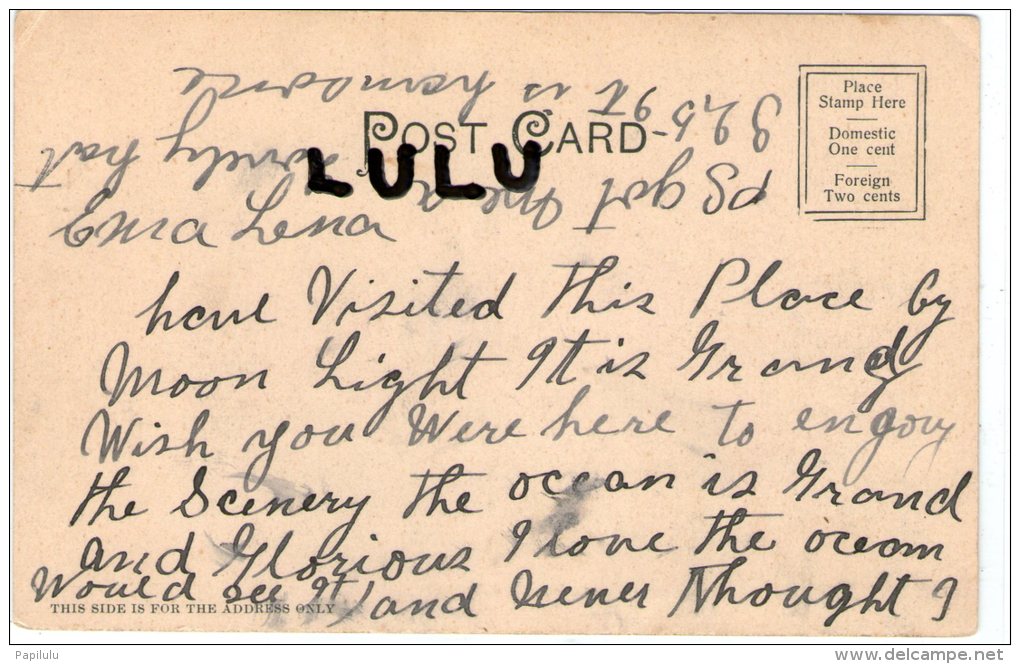 POST CARD
LULU
Place
Stamp Here
Domestic
One cent
Foreign
Two cents
have Visited This Place by
Moon Light It is Grand
Wish you Were here to engoy
the Scenery the ocean is Grand
and Glorious I love the ocean
and never Thought I
Would see It
Lena
PS got me a lovely hat
3 25 It is hansome
THIS SIDE IS FOR THE ADDRESS ONLY
Papilulu
www.delcampe.net